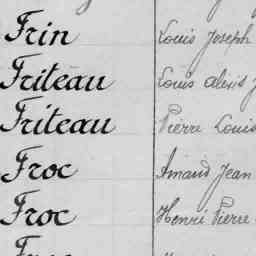 Frin Louis Joseph
Friteau Louis alexis
Friteau Pierre Louis
Froc Amand Jean
Froc Henri Pierre